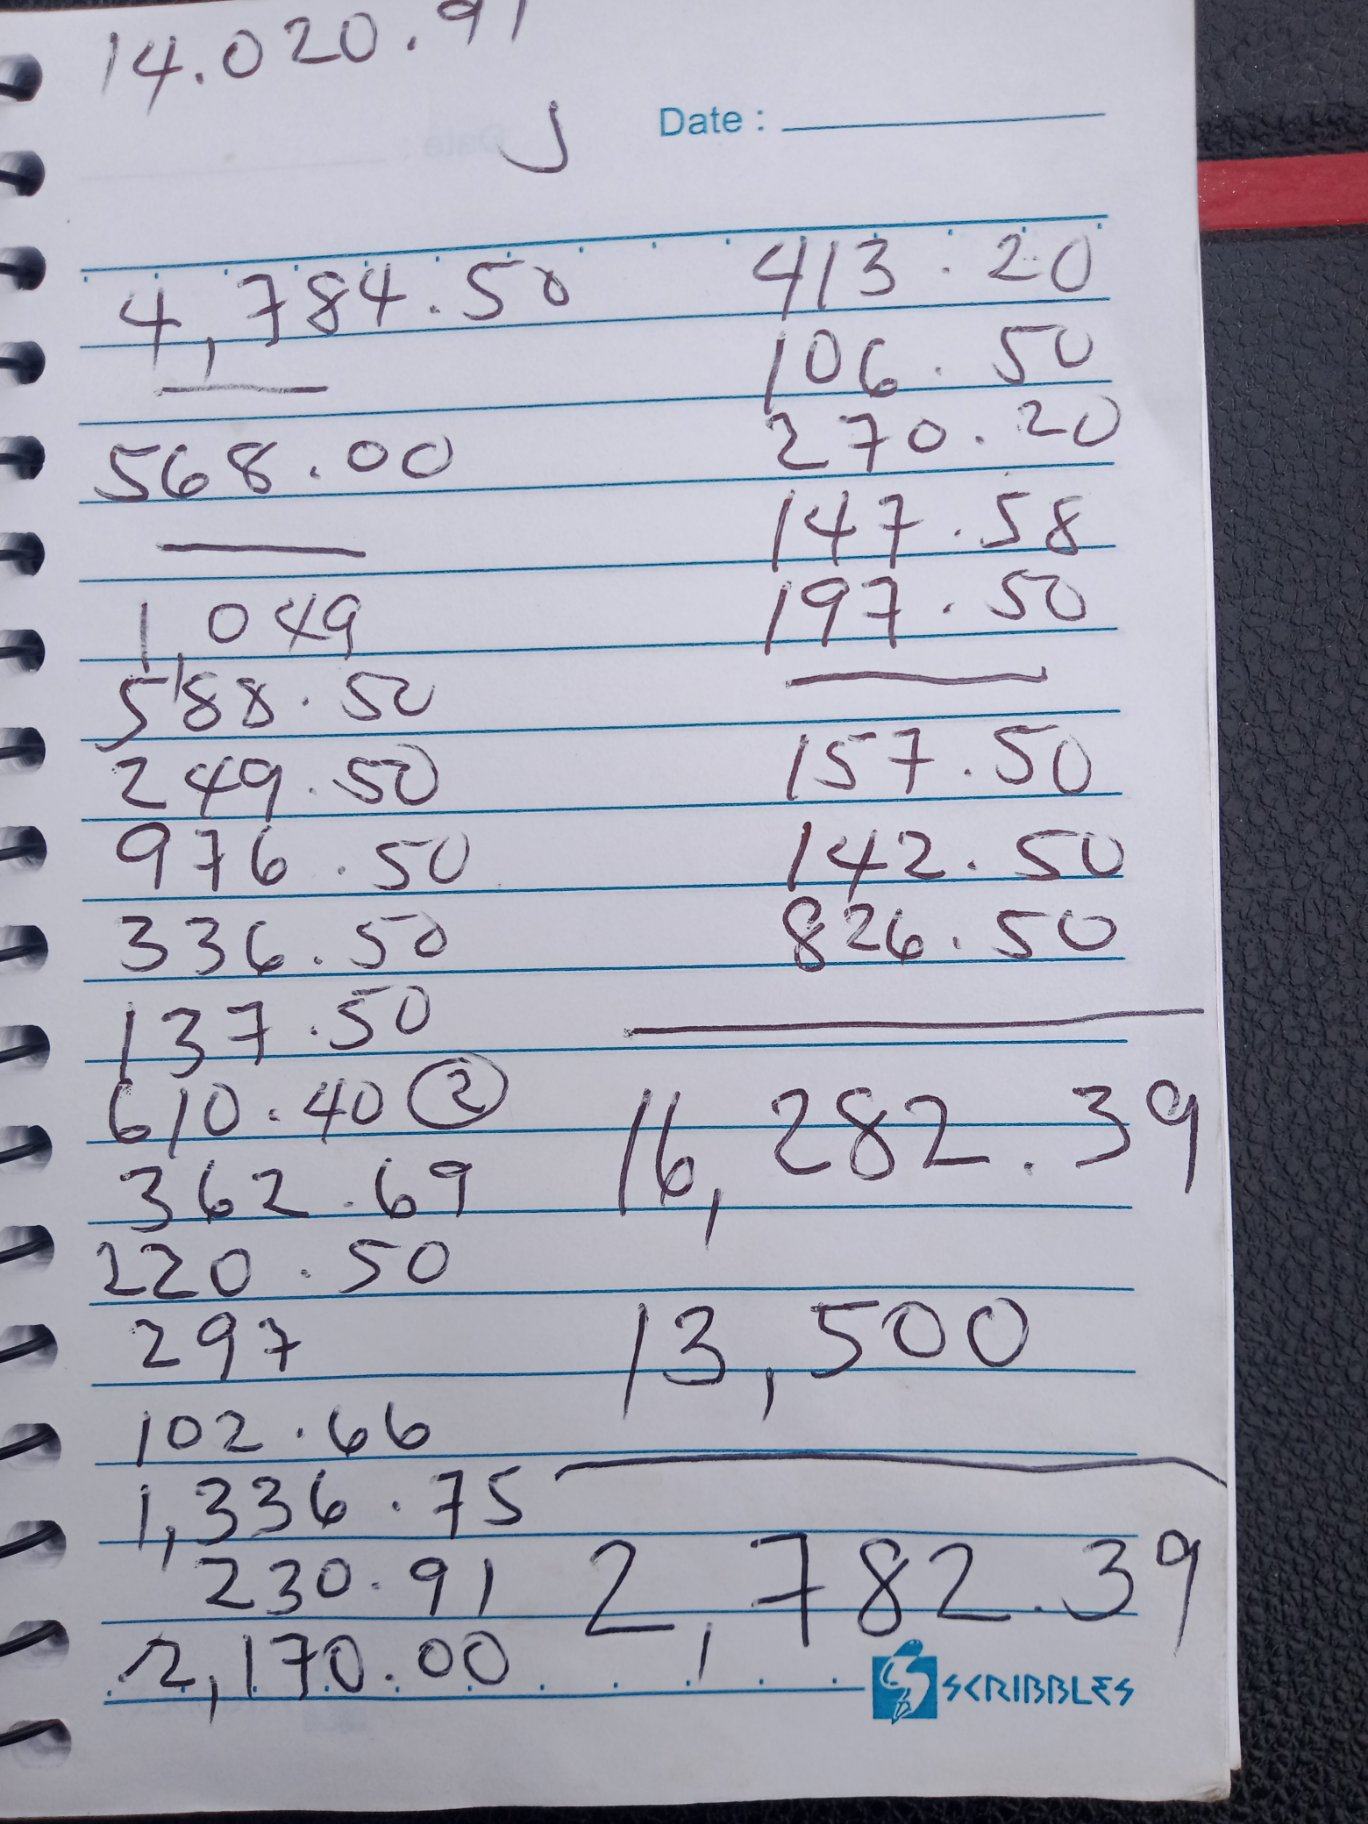 14.020.91
Date :
4,784.50
568.00
1,049
588.50
249.50
976.50
336.50
137.50
610.40 2
362.69
220.50
297
102.66
1,336.75
230.91
2,170.00
413.20
106.50
270.20
147.58
197.50
157.50
142.50
826.50
16,282.39
13,500
2,782.39
SCRIBBLES